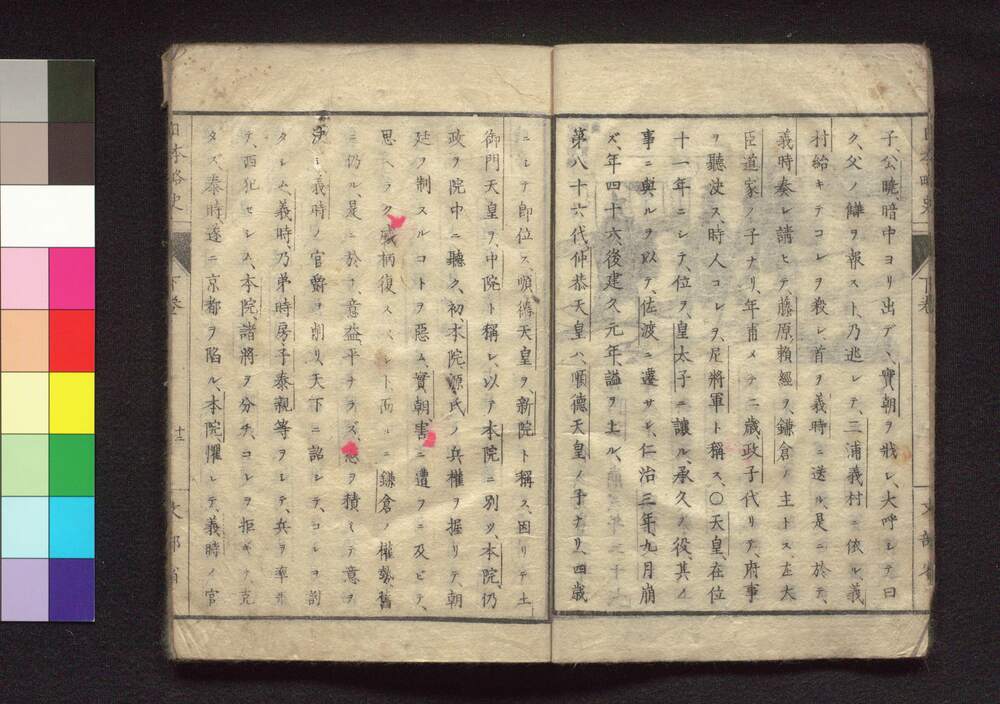 子、公曉、暗中ヨリ出デヽ、實朝ヲ戕シ、大呼シテ曰
ク、父ノ讎ヲ報スト、乃逃レテ、三浦義村ニ依ル、義
村紿キテコレヲ殺シ首ヲ義時ニ送ル、是ニ於テ、
義時奏シ請ヒテ、藤原賴經ヲ、鎌倉ノ主トス、左大
臣道家ノ子ナリ、年甫メテ二歲、政子代リテ、府事
ヲ聽决ス、時人コレヲ、尼將軍ト稱ス、〇天皇、在位
十一年ニシテ、位ヲ、皇太子ニ讓ル、承久ノ役、其ノ
事ニ與ルヲ以テ、佐渡ニ遷サレ、仁治三年、九月崩
ズ、年四十六、後建久元年、謚ヲ上ル、
第八十六代仲恭天皇ハ、順德天皇ノ子ナリ、四歲
ニシテ卽位ス、順德天皇ヲ、新院ト稱ス、因リテ土
御門天皇ヲ、中院ト稱シ、以テ本院ニ別ツ、本院、仍
政ヲ院中ニ聽ク、初、本院、源氏ノ兵權ヲ握リテ、朝
廷ヲ制スルコトヲ惡ム、實朝害ニ遭フニ及ビテ、
思ヘラク、威柄復スベシト、而ルニ鎌倉ノ權勢舊
ニ仍ル、是ニ於テ、意益平ナラズ、怒ヲ積ミテ意ヲ
決シ、義時ノ官爵ヲ削リ、天下ニ詔シテ、コレヲ討
タシム、義時、乃弟時房、子泰親等ヲシテ、兵ヲ率ヰ
テ、西犯セシム、本院、諸將ヲ分チ、コレヲ拒ギテ、克
タズ、泰時遂ニ京都ヲ陷ル、本院、懼レテ、義時ノ官
日本略史
下卷
十三
文部省